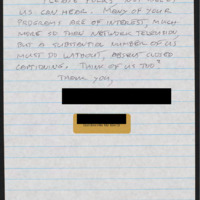 US. CAN HEAR. MANY OF YOUR
PROGRAMS ARE OF INTEREST, MUCH
MORE SO THEN NETWORK TELEVISION,
BUT A SUBSTANTIAL NUMBER OF US
MUST DO WITHOUT, ABSENT CLOSED
CAPTIONING. THINK OF US TOO?
THANK YOU,